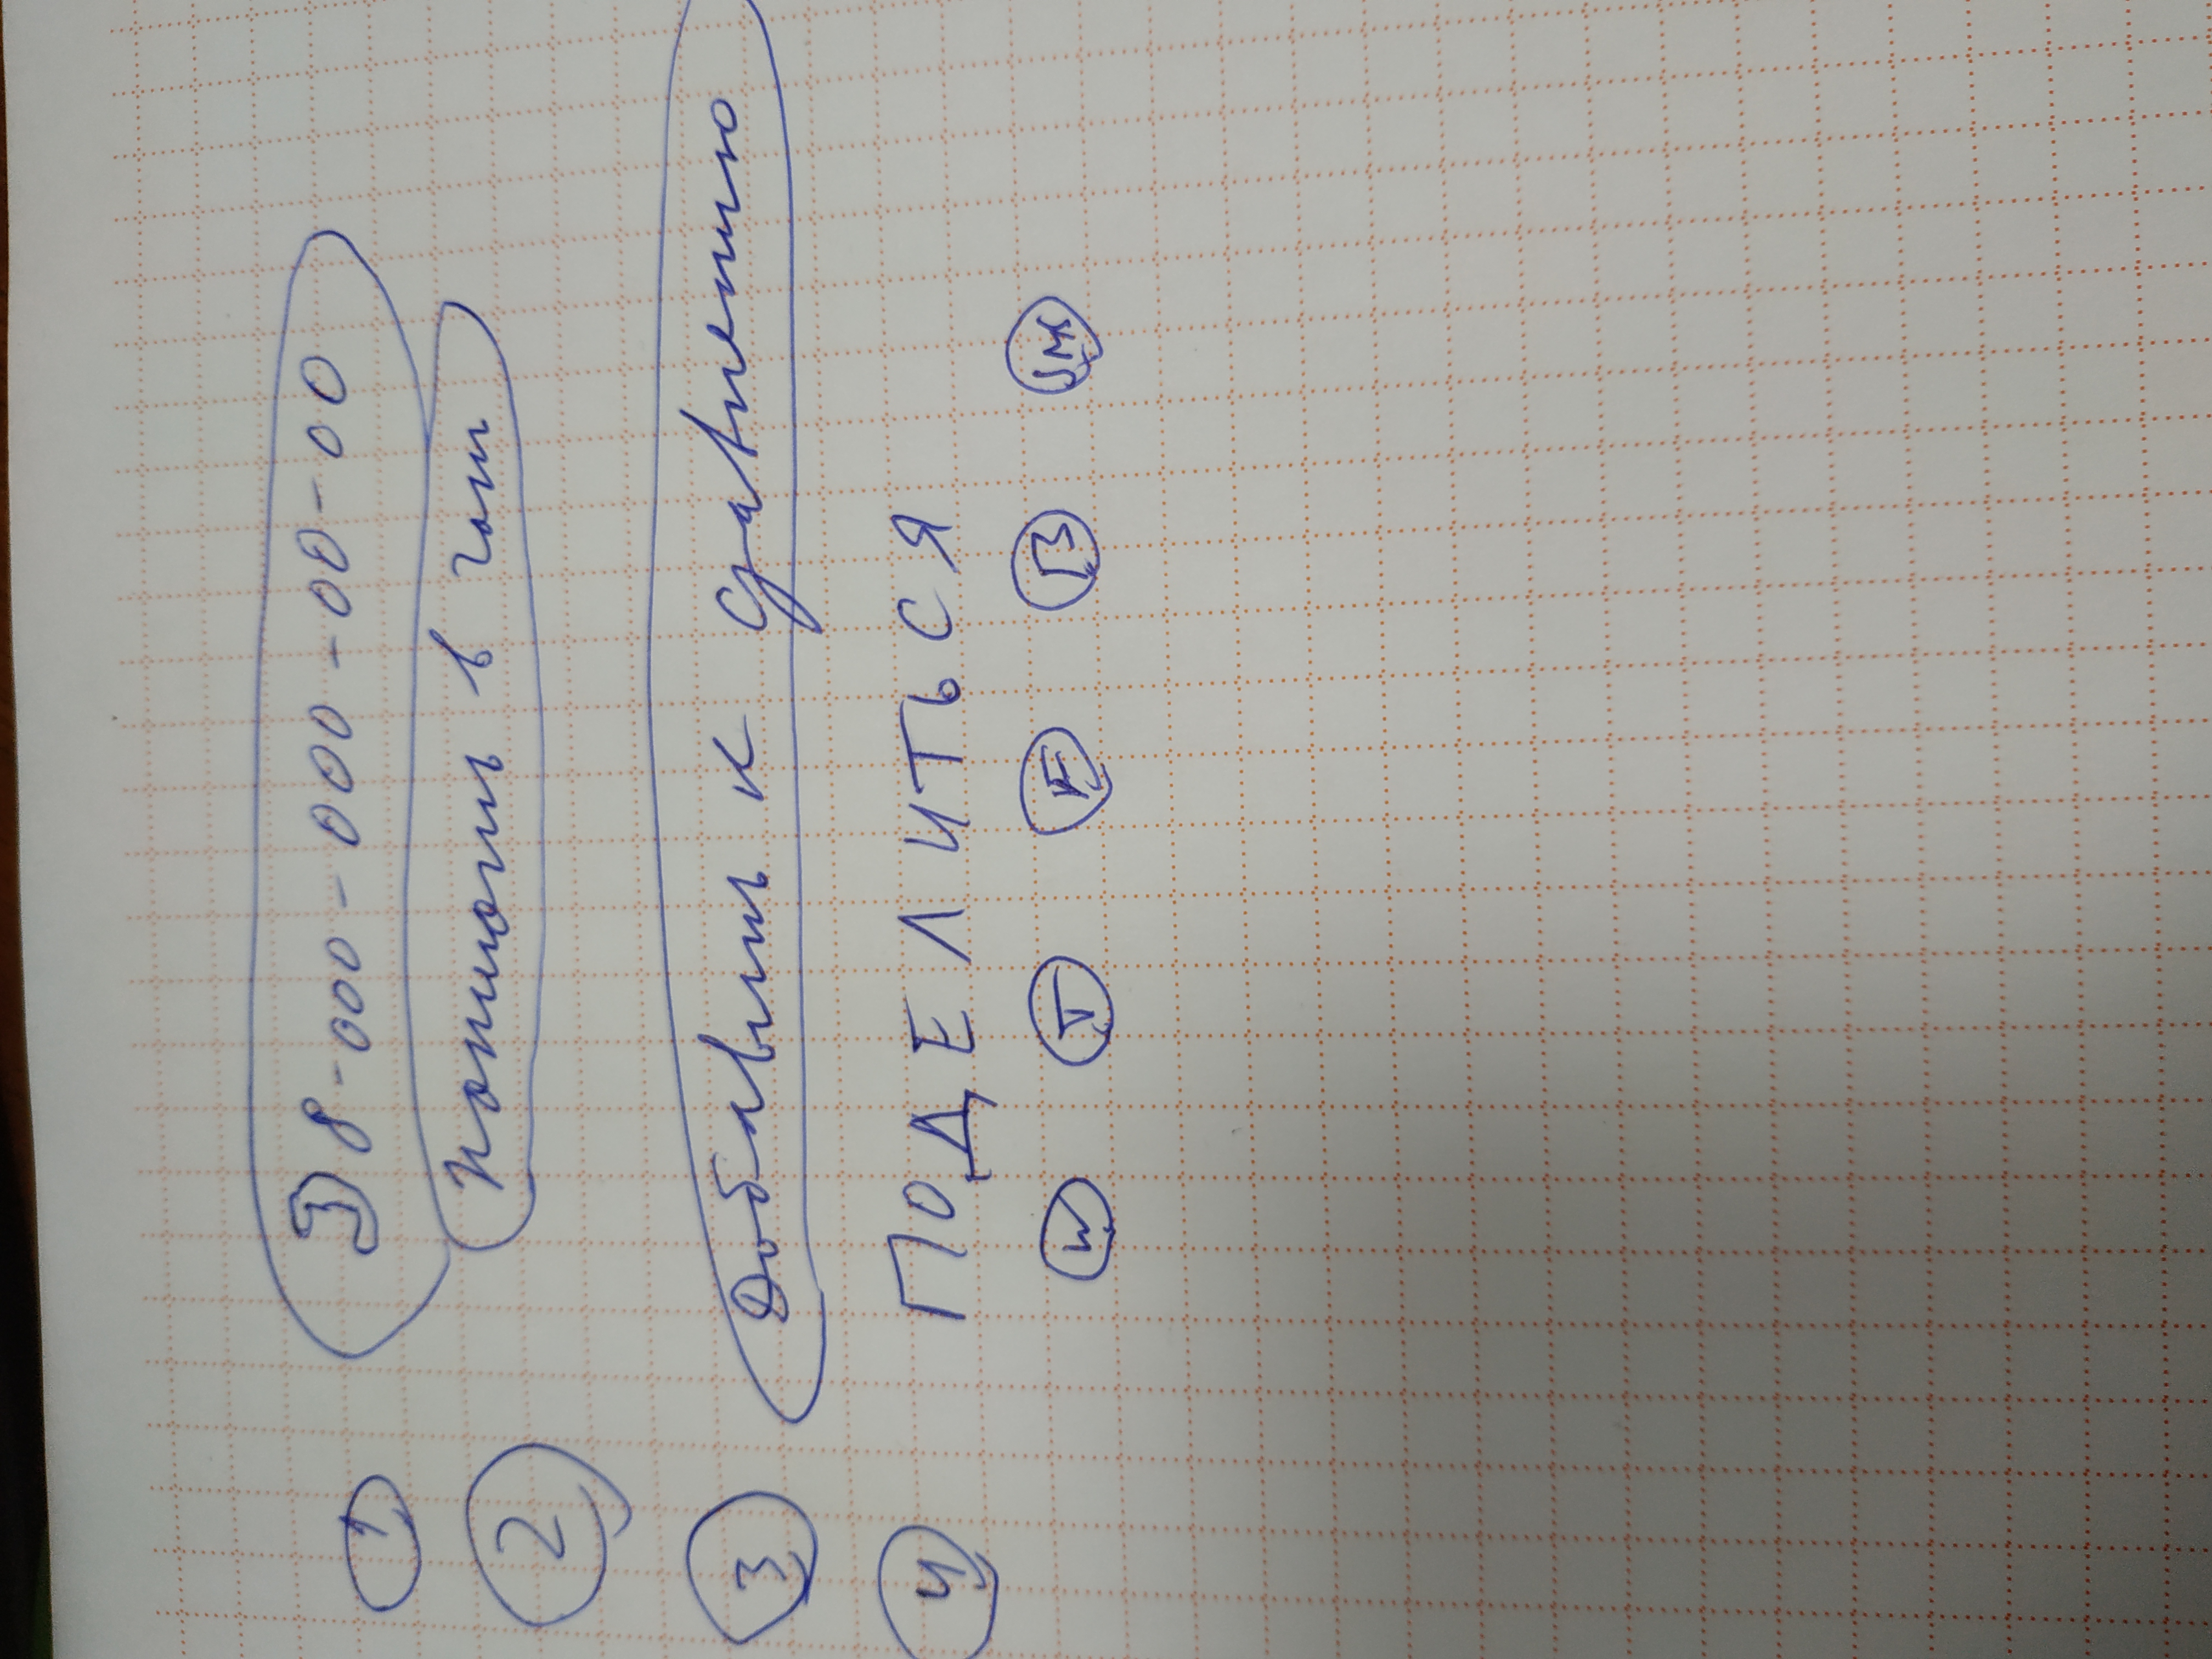 1 8-000-000-00-00
2 Написать в чат
3 Добавить к сравнению
4 ПОДЕЛИТЬСЯ
W T F B